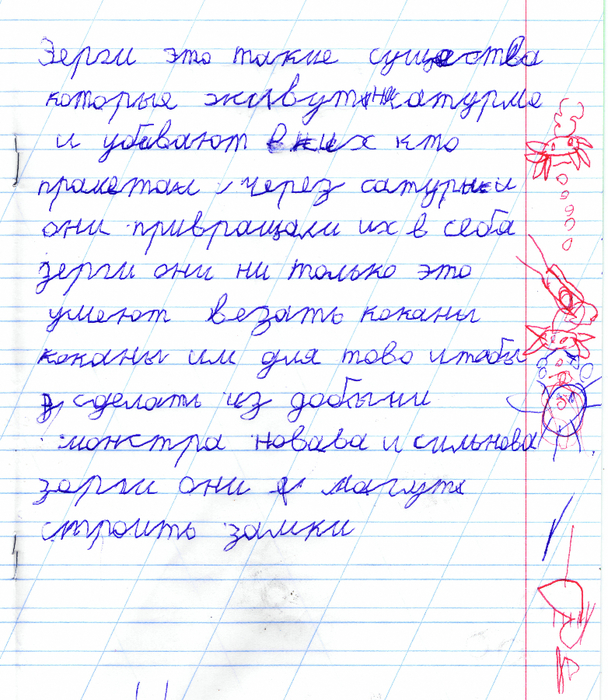 Зерги это такие существа
которые живут на сатурне
и убевают всех кто
пралетал через сатурн и
они привращали их в себа
зерги они ни только это
умеют везать коканы
коканы им для тово чтабы
сделать из добычи
монстра новава и сильнова
зерги они магут
строить замки